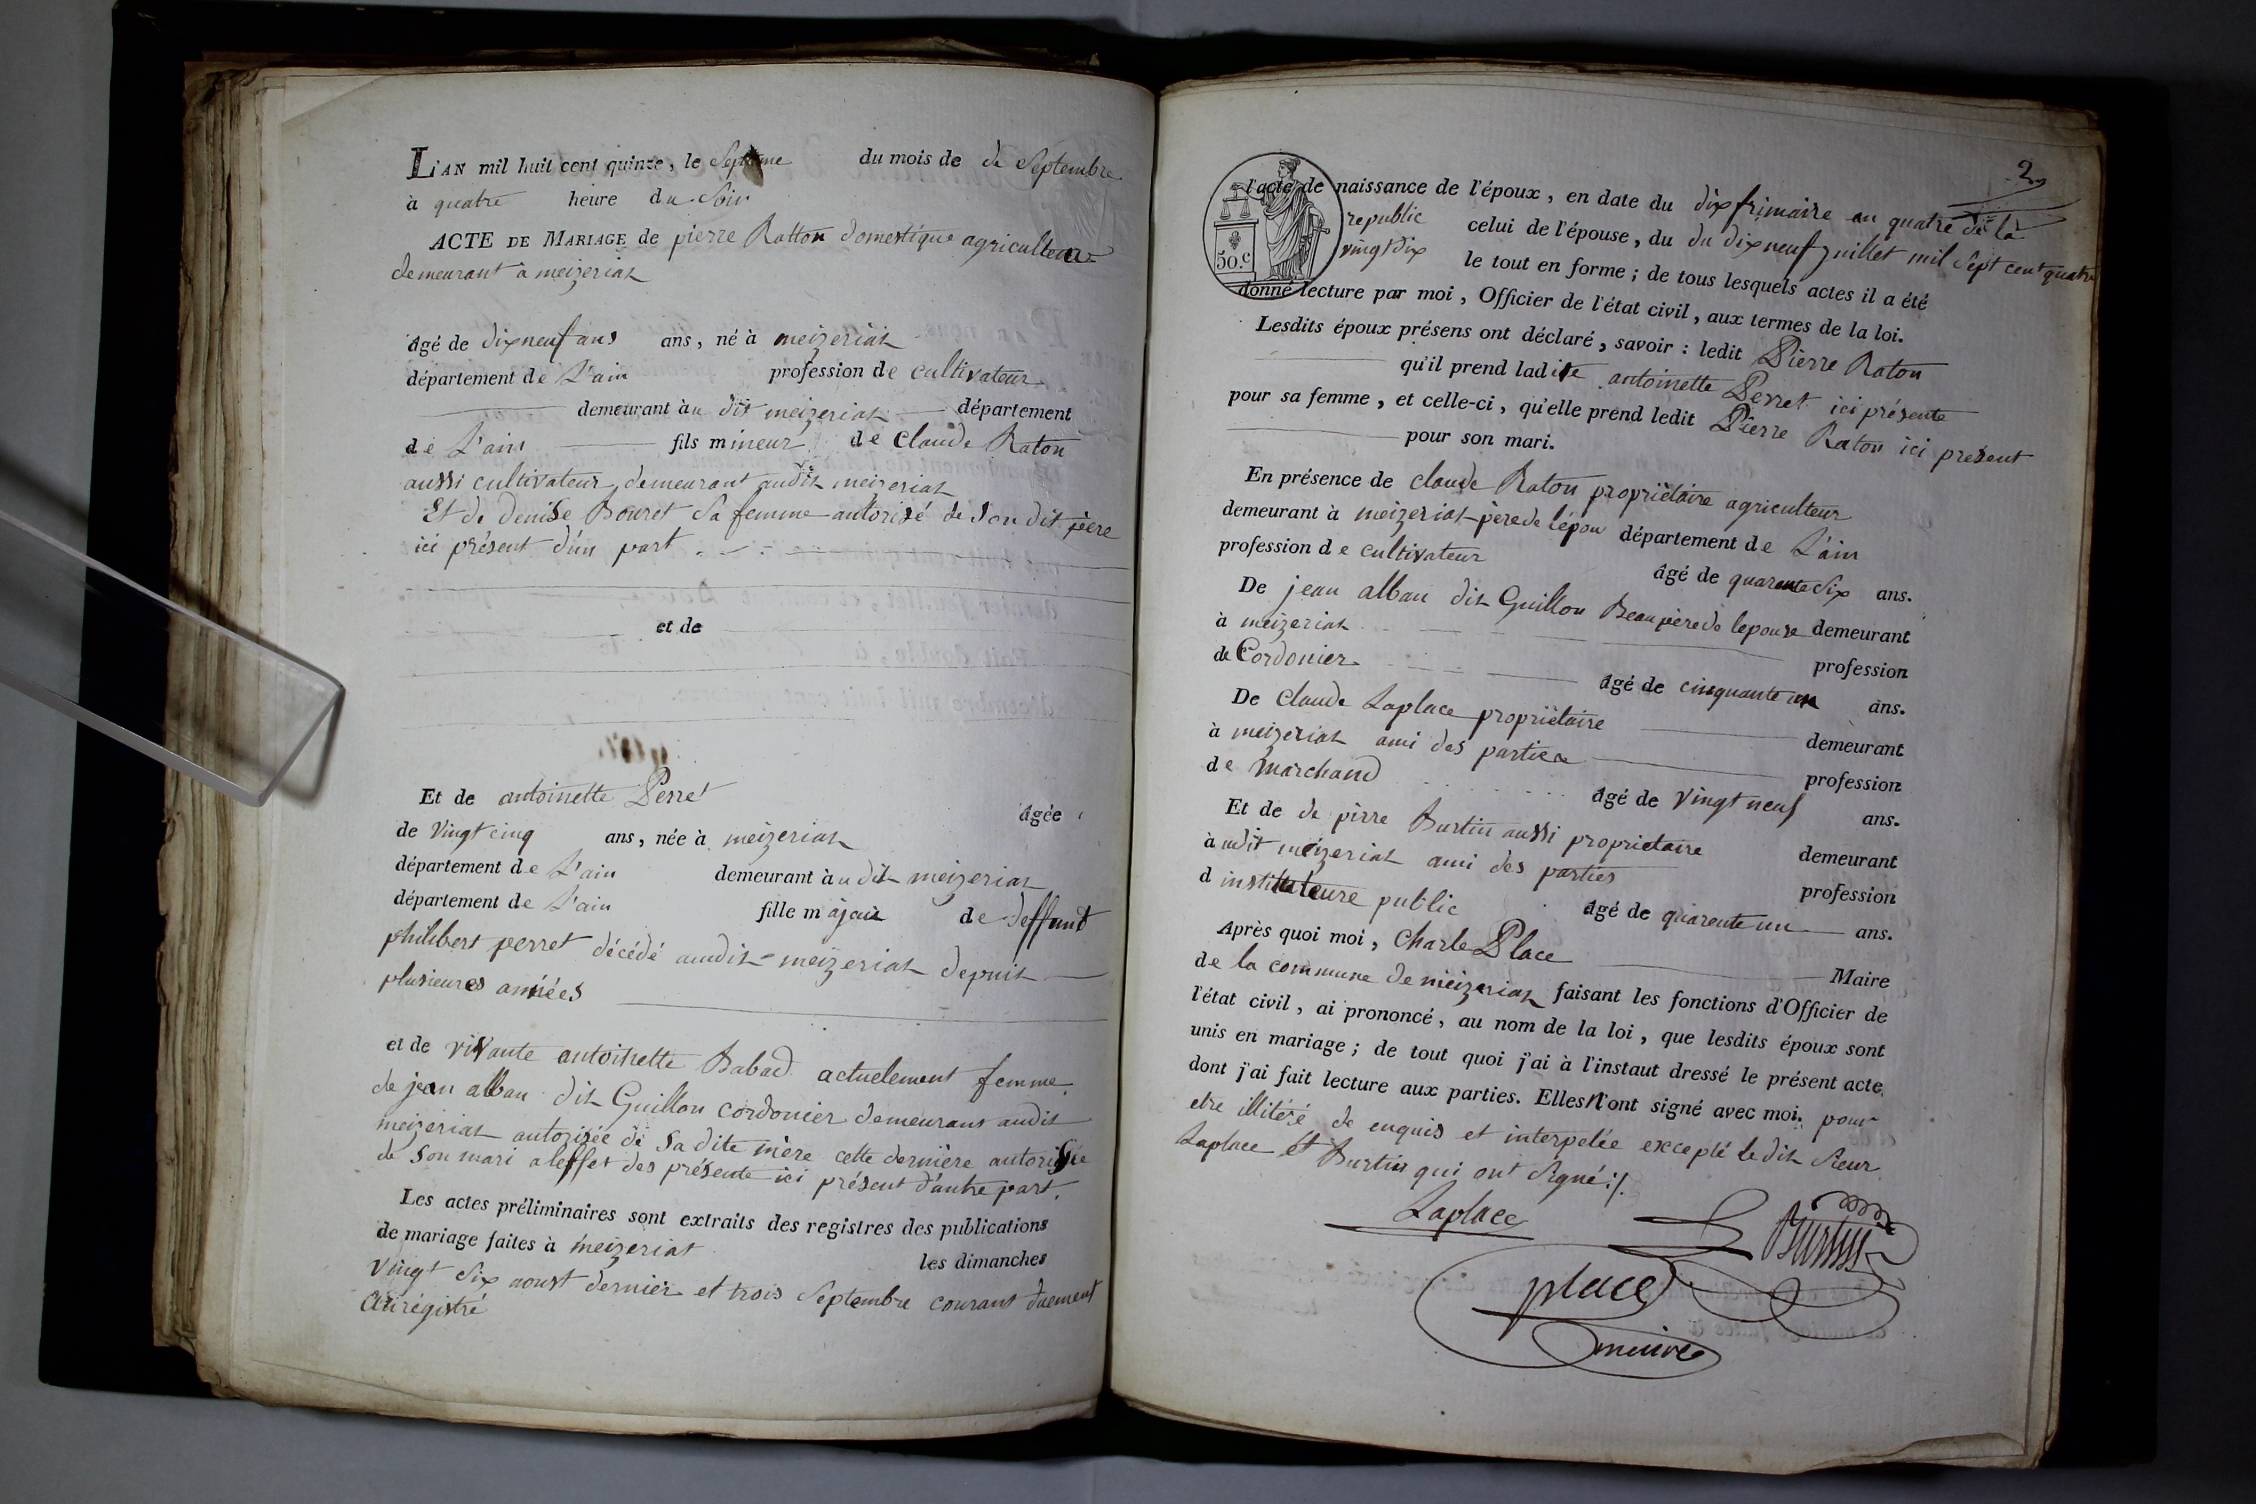 L'AN mil huit cent quinze, le Septieme du mois de de Septembre
à quatre heure du Soir
ACTE DE MARIAGE de pierre Ratton domestique agriculteur
demeurant à meizeriat
âgé de dixneuf ans ans, né à meizeriat
département de L'ain profession de cultivateur
demeurant à u dit meizeriat département
de L'ain fils mineur de Claude Raton
aussi cultivateur demeurant audit meizeriat
Et de denise Bouret Sa femme autorisé de Son dit père
ici présent d'un part
et de
Et de antoinette Perret âgée
de Vingt cinq ans, née à meizeriat
département de L'ain demeurant à u dit meizeriat
département de L'ain fille majeur de deffunt
philibert perret décédé audit meizeriat depuit
plusieures années
et de vivante antoinette Babad actuelement femme
de jean alban dit Guillon cordonier demeurans audit
meizeriat autorisée de Sa dite mère cette dernière autorisée
de Son mari a leffet des présente ici présent d'autre part.
Les actes préliminaires sont extraits des registres des publications
de mariage faites à meizeriat les dimanches
Vingt Six aoust dernier et trois Septembre courant duement
enrégistré
2
50.c
l'acte de naissance de l'époux, en date du dix frimaire an quatre de la
republic celui de l'épouse, du du dix neuf juillet mil Sept cent quatre
vingt dix le tout en forme; de tous lesquels actes il a été
donné lecture par moi, Officier de l'état civil, aux termes de la loi.
Lesdits époux présens ont déclaré, savoir: ledit Pierre Raton
qu'il prend ladite antoinette Perret ici présente
pour sa femme, et celle-ci, qu'elle prend ledit Pierre Raton ici present
pour son mari.
En présence de claude Raton propriètaire agriculteur
demeurant à meizeriat père de lépou département de L'ain
profession de cultivateur âgé de quarente Six ans.
De jean alban dit Guillon Beau père de lepouse demeurant
à meizeriat profession
de Cordonier âgé de cinquante un ans.
De Claude Laplace propriètaire demeurant
à meizeriat ami des parties profession
de marchand âgé de vingt neuf ans.
Et de de pirre Burtin aussi proprietaire demeurant
à udit meizeriat ami des parties profession
d instituteure public âgé de quarente un ans.
Après quoi moi, Charle Place Maire
de la commune de meizeriat faisant les fonctions d'Officier de
l'état civil, ai prononcé, au nom de la loi, que lesdits époux sont
unis en mariage; de tout quoi j'ai à l'instaut dressé le présent acte,
dont j'ai fait lecture aux parties. Elles n'ont signé avec moi. pour
etre illitéré de enquis et interpelée excepté le dit Sieur
Laplace et Burtin qui ont Signé:/.
Laplace
Burtin
place
maire